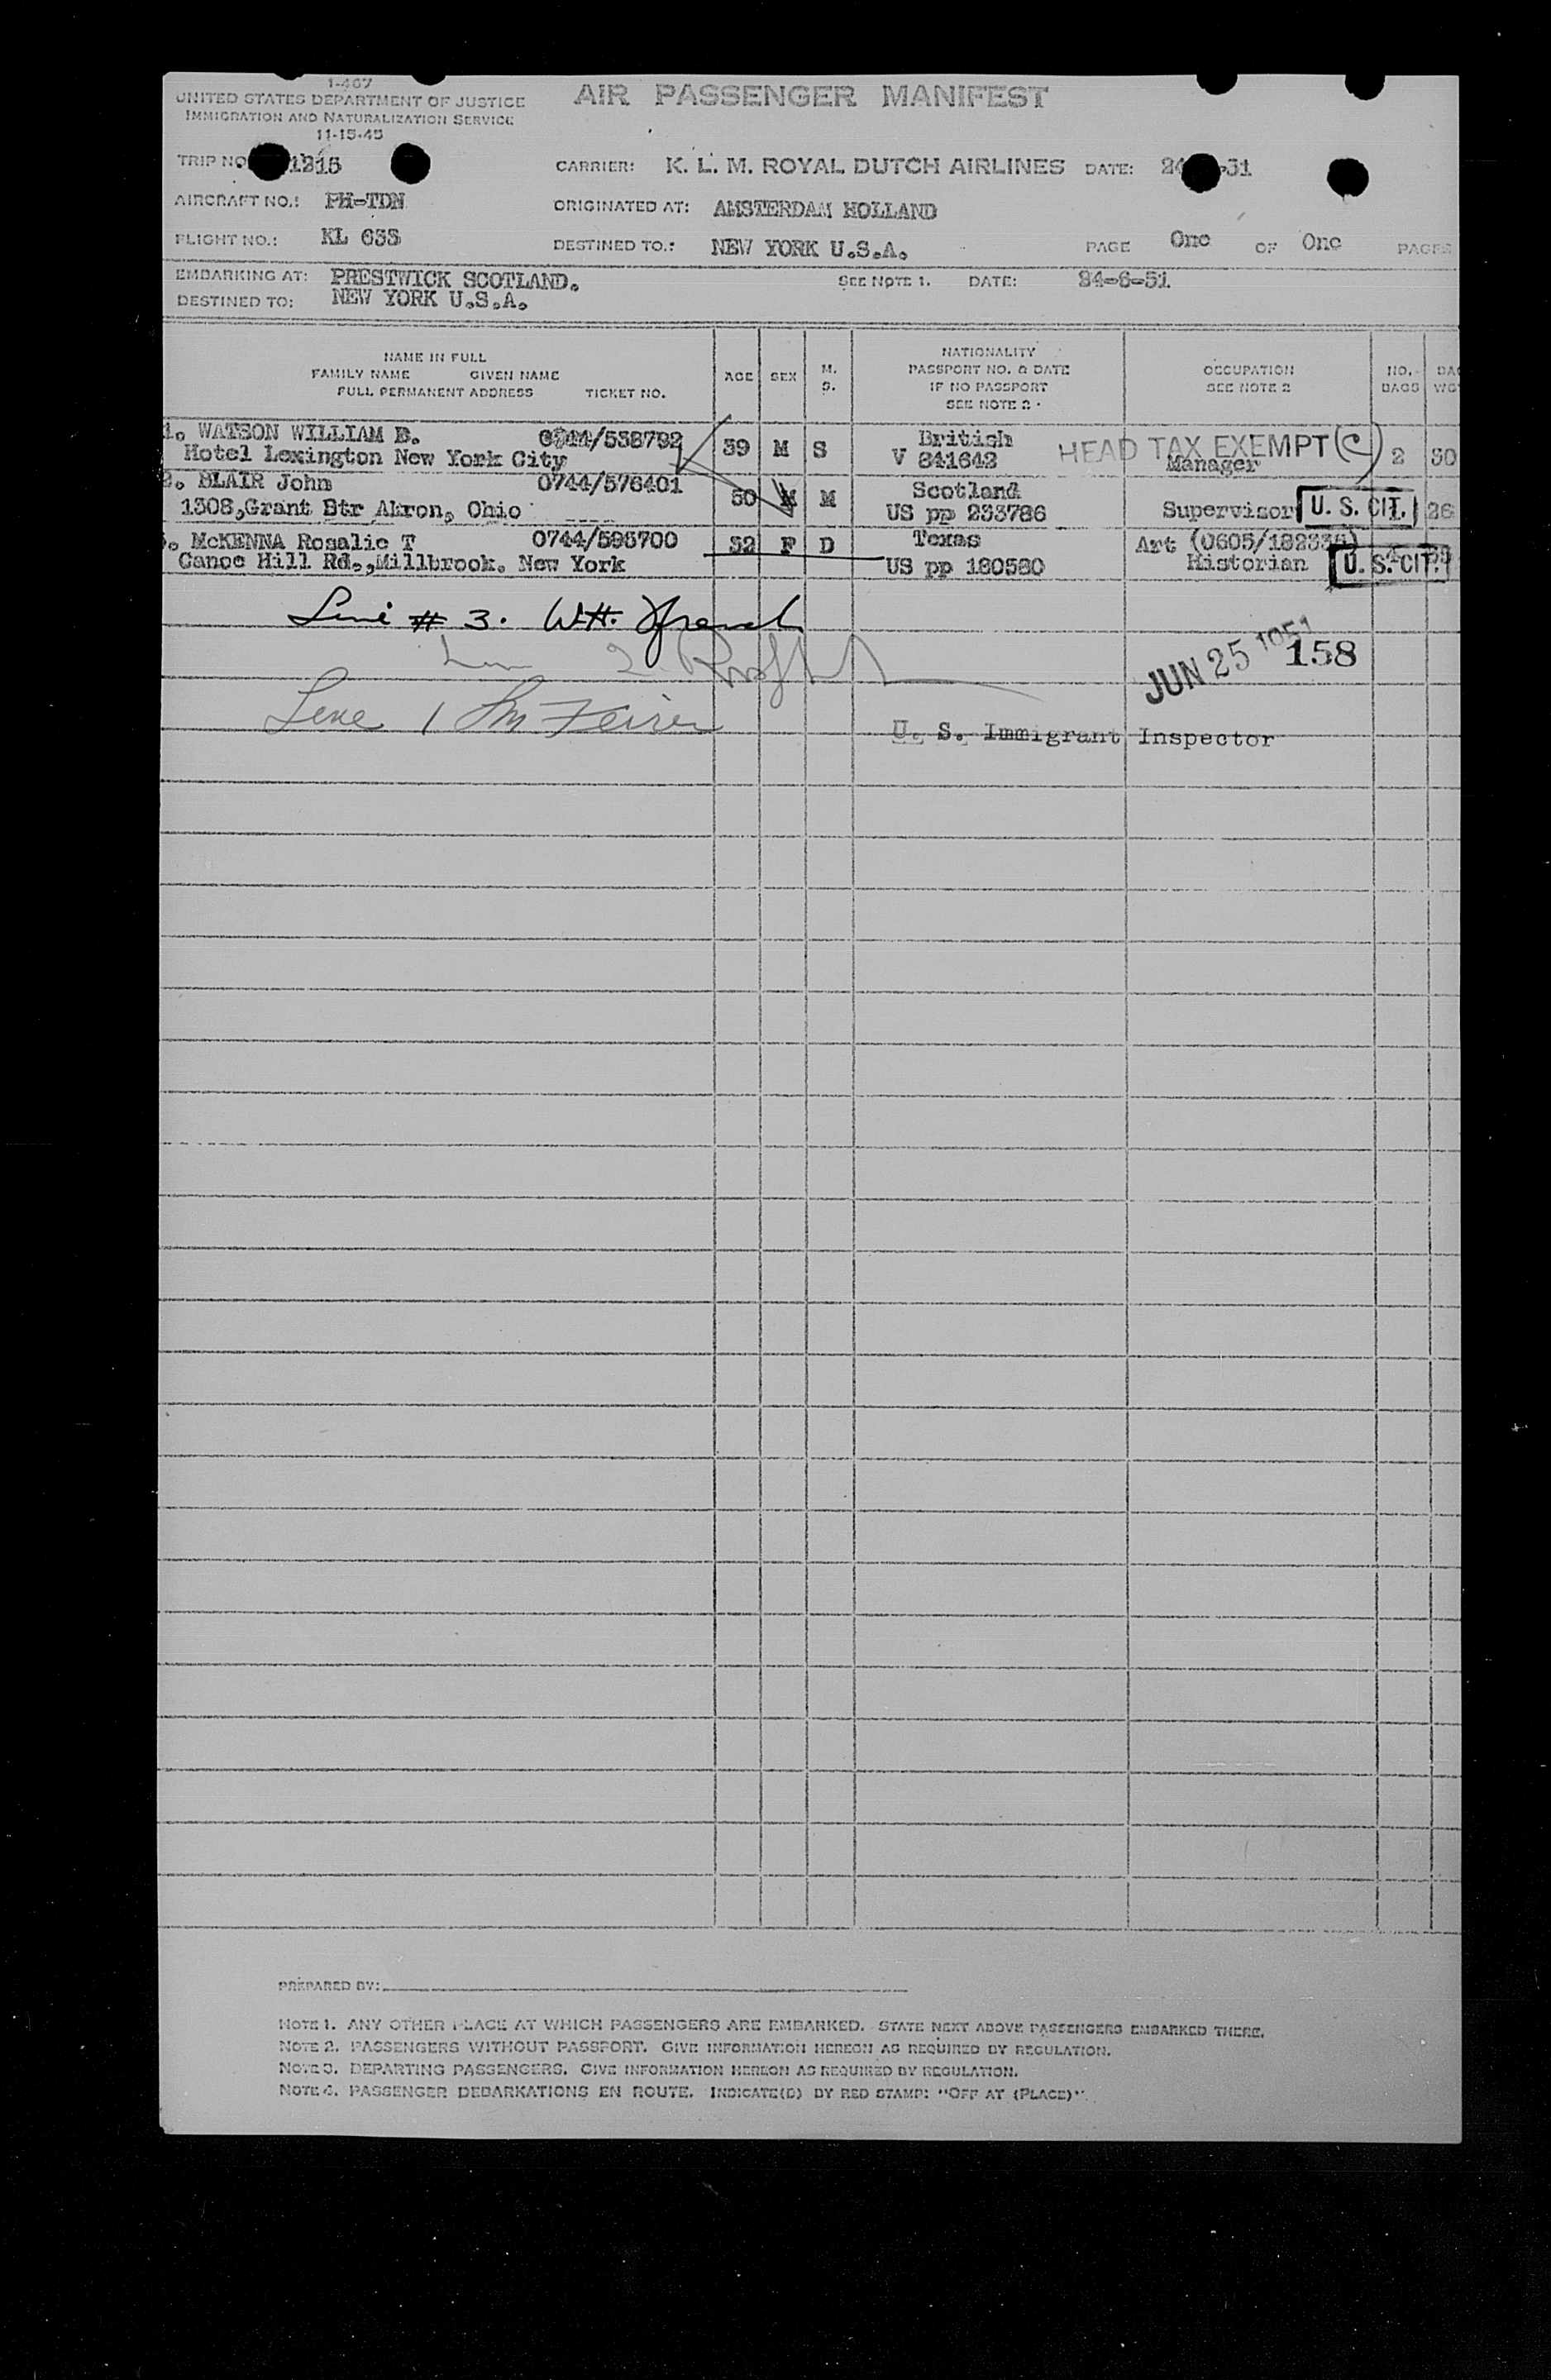 1-467
UNITED STATES DEPARTMENT OF JUSTICE
IMMIGRATION AND NATURALIZATION SERVICE
11-15-45
AIR PASSENGER MANIFEST
TRIP NO. 1215 CARRIER: K. L. M. ROYAL DUTCH AIRLINES DATE: 24 -51
AIRCRAFT NO.: PH-TDN ORIGINATED AT: AMSTERDAM HOLLAND
FLIGHT NO.: KL 633 DESTINED TO.: NEW YORK U.S.A. PAGE One OF One PAGES
EMBARKING AT: PRESTWICK SCOTLAND. SEE NOTE 1. DATE: 24-6-51
DESTINED TO: NEW YORK U.S.A.
NAME IN FULL
FAMILY NAME GIVEN NAME
FULL PERMANENT ADDRESS TICKET NO.
AGE
SEX
M. S.
NATIONALITY
PASSPORT NO. & DATE
IF NO PASSPORT
SEE NOTE 2
OCCUPATION
SEE NOTE 2
NO. BAGS
1. WATSON WILLIAM B. 0744/538792 39 M S British HEAD TAX EXEMPT (C)
Hotel Lexington New York City V 841642 Manager 2 30
2. BLAIR John 0744/576401 50 M M Scotland
1308,Grant Str Akron, Ohio US pp 233786 Supervisor U. S. CIT. 26
McKENNA Rosalie T 0744/596700 32 F D Texas Art
Canoe Hill Rd.,Millbrook. New York US pp 180580 Historian U. S. CIT.
Line # 3. W.H. French
JUN 25 1951
158
Line 1
U. S. Immigrant Inspector
PREPARED BY:
NOTE 1. ANY OTHER PLACE AT WHICH PASSENGERS ARE EMBARKED. STATE NEXT ABOVE PASSENGERS EMBARKED THERE.
NOTE 2. PASSENGERS WITHOUT PASSPORT. GIVE INFORMATION HEREON AS REQUIRED BY REGULATION.
NOTE 3. DEPARTING PASSENGERS. GIVE INFORMATION HEREON AS REQUIRED BY REGULATION.
NOTE 4. PASSENGER DEBARKATIONS EN ROUTE. INDICATE(D) BY RED STAMP: "OFF AT (PLACE)".